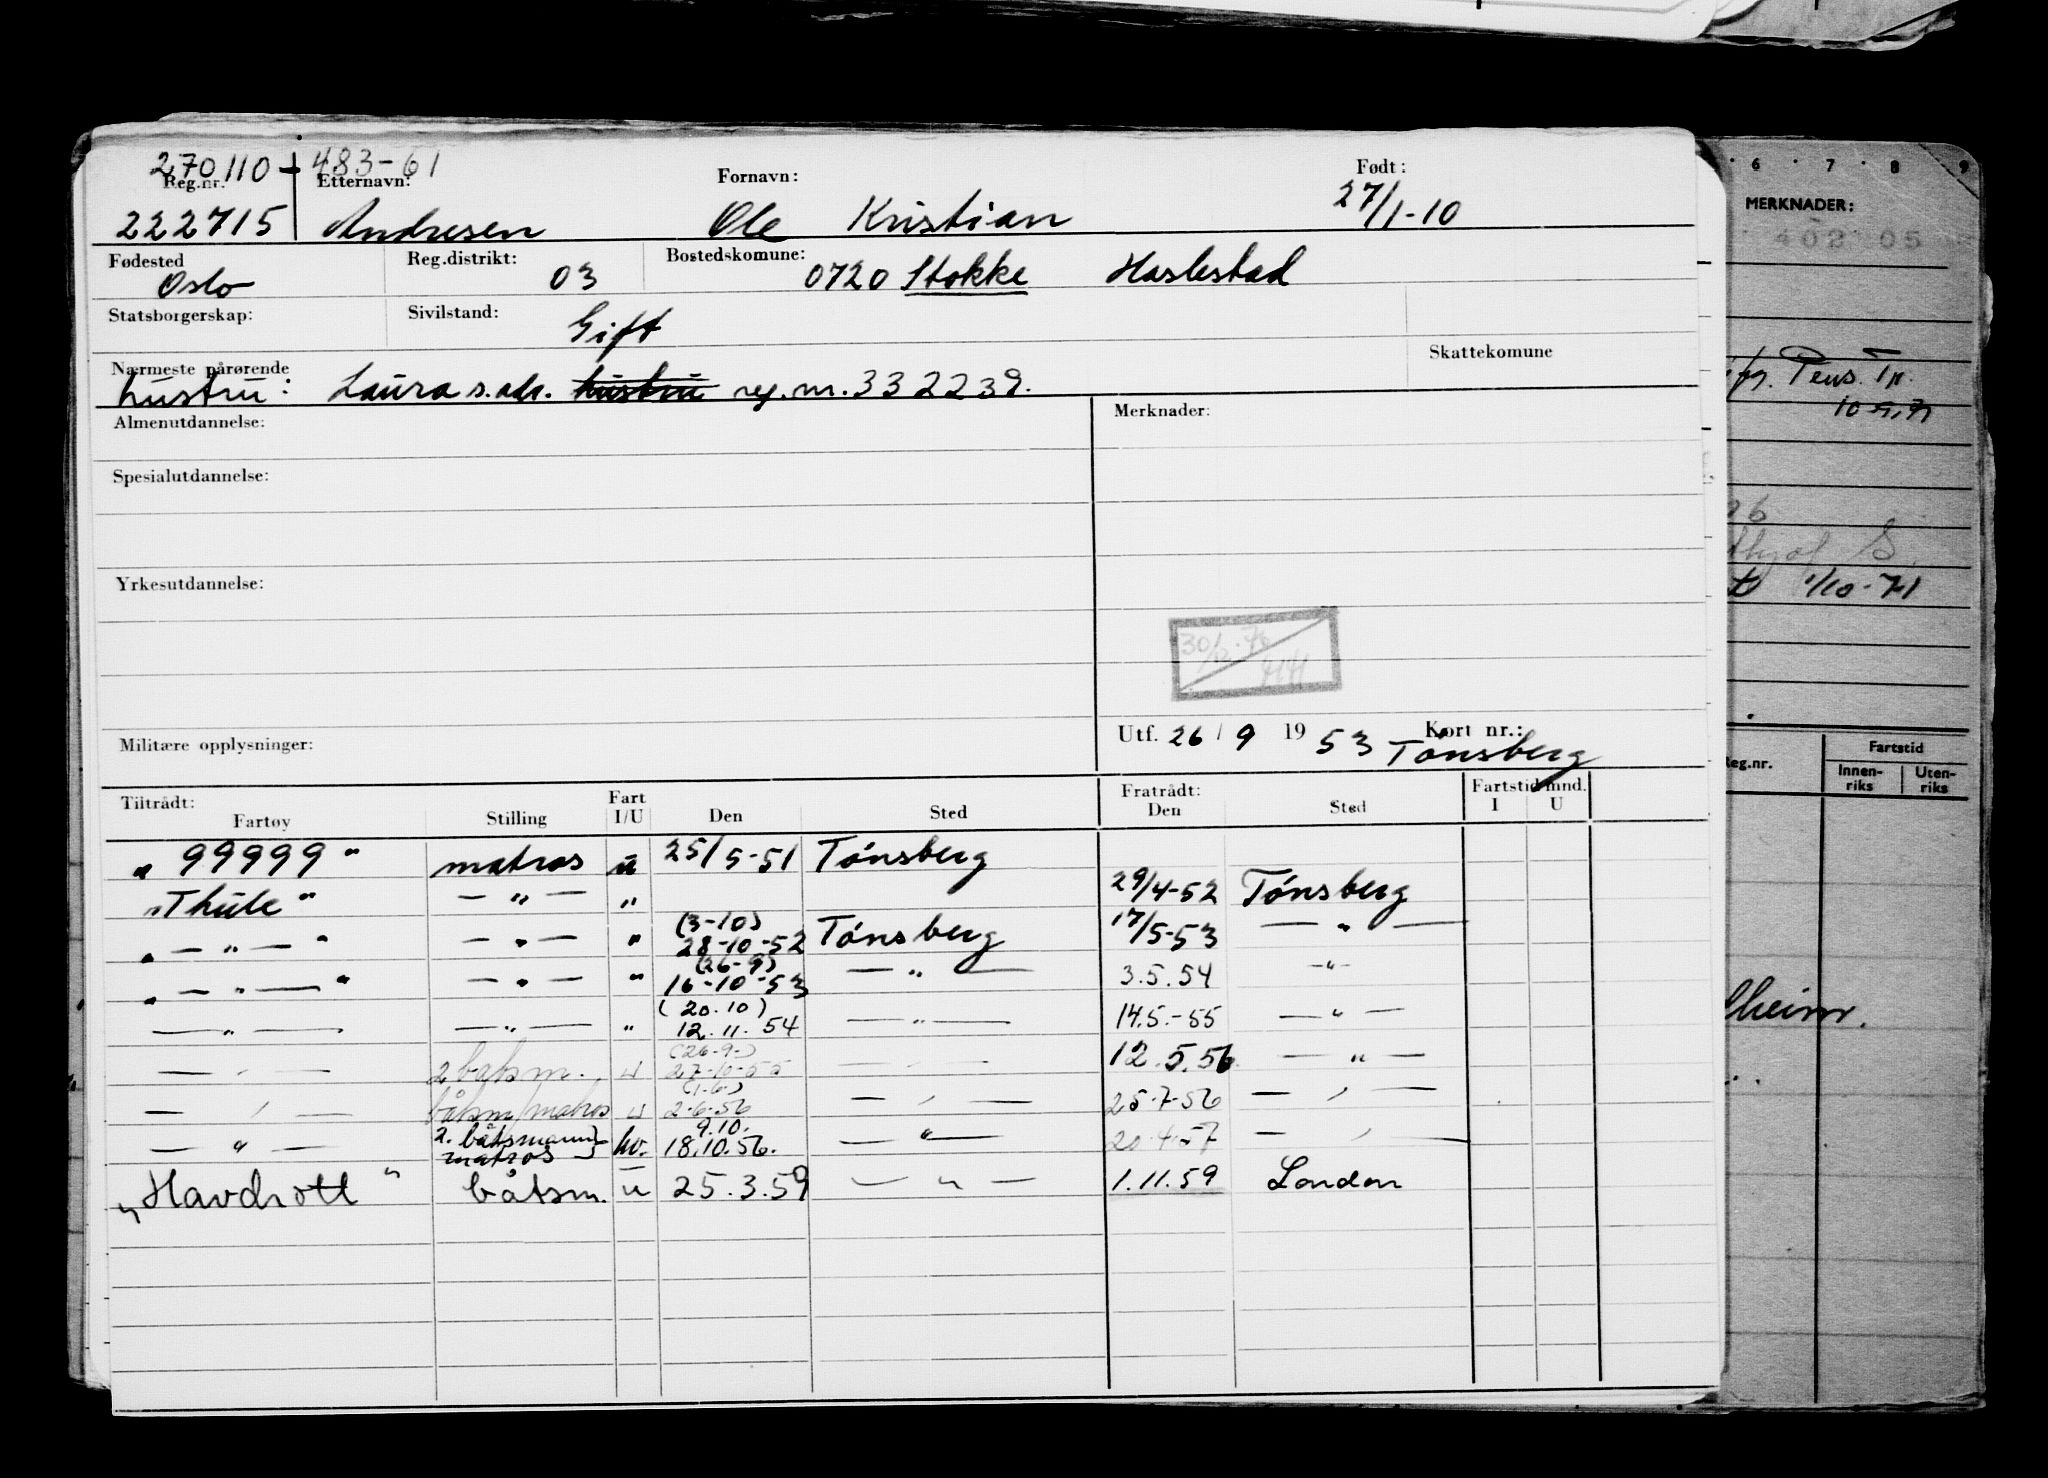 270110-48361
Reg.nr. Etternavn: Fornavn: Født:
222715 Andresen Ole Kristian 27/1-10
Fødested Reg.distrikt: Bostedskomune:
Oslo 03 0720 Stokke Haslestad
Statsborgerskap: Sivilstand: Gift
Nærmeste pårørende Skattekomune
hustru: Laura s.adr. hustru reg.nr. 332239.
Almenutdannelse: Merknader:
Spesialutdannelse:
Yrkesutdannelse:
30/12.76
Militære opplysninger: Utf. 26/9 1953 Kort nr.:
Tønsberg
Tiltrådt: Fart Fratrådt: Fartstid mnd.
Fartøy Stilling I/U Den Sted Den Sted I U
"99999" matros u 25/5-51 Tønsberg
"Thule" — " — " 29/4-52 Tønsberg
(3-10)
" — " — " — " — " 28-10-52 Tønsberg 17/5-53 — " —
(26-9)
" — " — " — " — " 16-10-53 — " — 3.5.54 — " —
(20.10)
— " — — " — " 12.11.54 — " — 14.5.-55 — " —
(26-9-)
— " — 2 båtsm. u 27-10-55 — " — 12.5.56 — " —
(1-6-)
— " — båtsm/matros u 2-6-56 — " — 25-7-56 — " —
2. båtsmann} 9.10.
— " — matros hv. 18.10.56. — " — 20.4.57 — " —
"Havdrott" båtsm. u 25.3.59 — " — 1.11.59 London
6 7 8 9
MERKNADER:
402 05
Pens. Tr.
10-9-71
26
S
1/10-71
Reg.nr. Fartstid
Innenriks Utenriks
lheim.